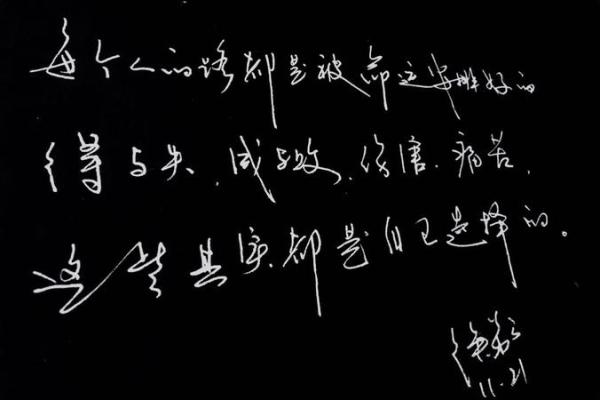 每个人的路都是被命运安排好的
得与失,成与败,伤害,痛苦,
这些其实都是自己选择的。
11.21